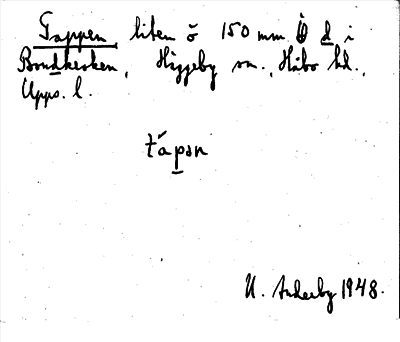 Tappen, liten ö 150 mm Ö d i
Bondkroken, Häggeby sn., Håbo hd.,
Upps. l.
tápən
U. Anderby 1948.